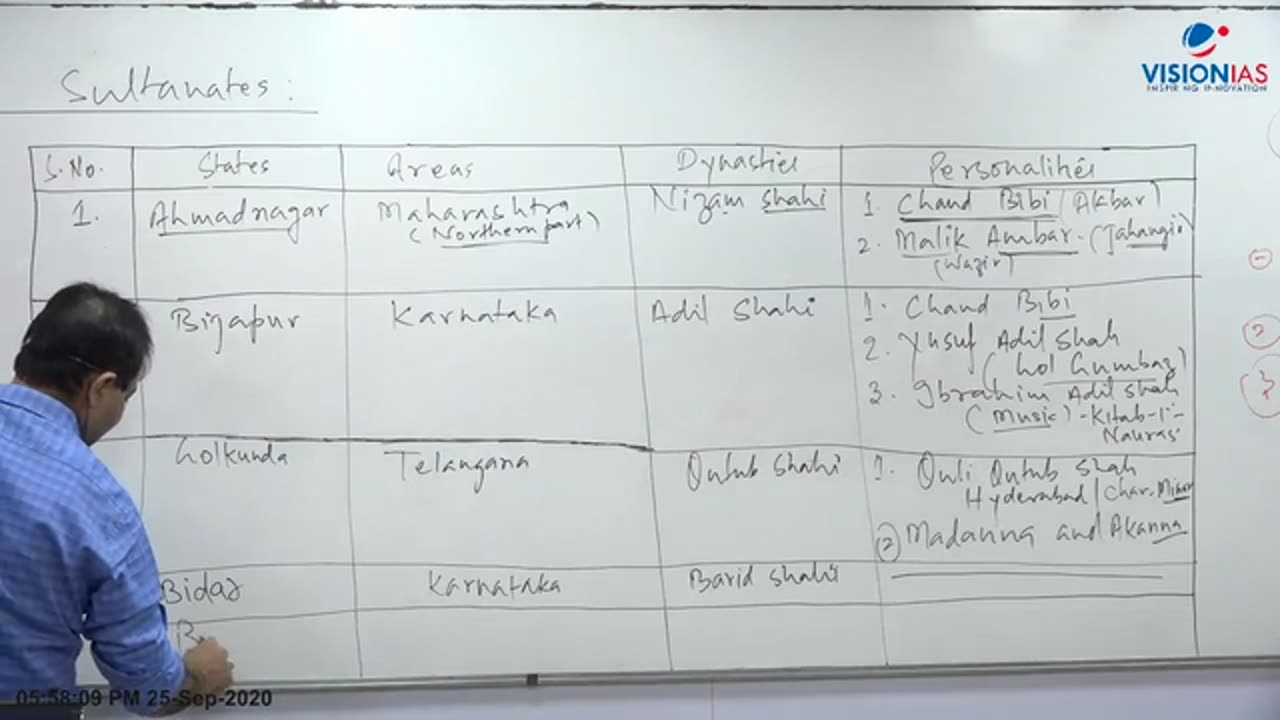 VISIONIAS
INSPIRING INNOVATION
Sultanates:
S.No. States Areas Dynasties Personalities
1. Ahmadnagar Maharashtra Nizam shahi 1. Chand Bibi (Akbar)
(Northern part) 2. Malik Ambar - (Jahangir)
(Wazir)
Bijapur Karnataka Adil Shahi 1. Chand Bibi
2. Yusuf Adil Shah
(Gol Gumbaz)
3. Ibrahim Adil Shah
(Music) - Kitab-i-
Nauras
Golkunda Telangana Qutub Shahi 1. Quli Qutub Shah
Hyderabad / Char-Minar
(2) Madanna and Akanna
Bidar Karnataka Barid Shahi
05:58:09 PM 25-Sep-2020